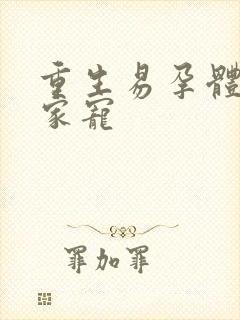 重生易孕體
家寵
罪加罪